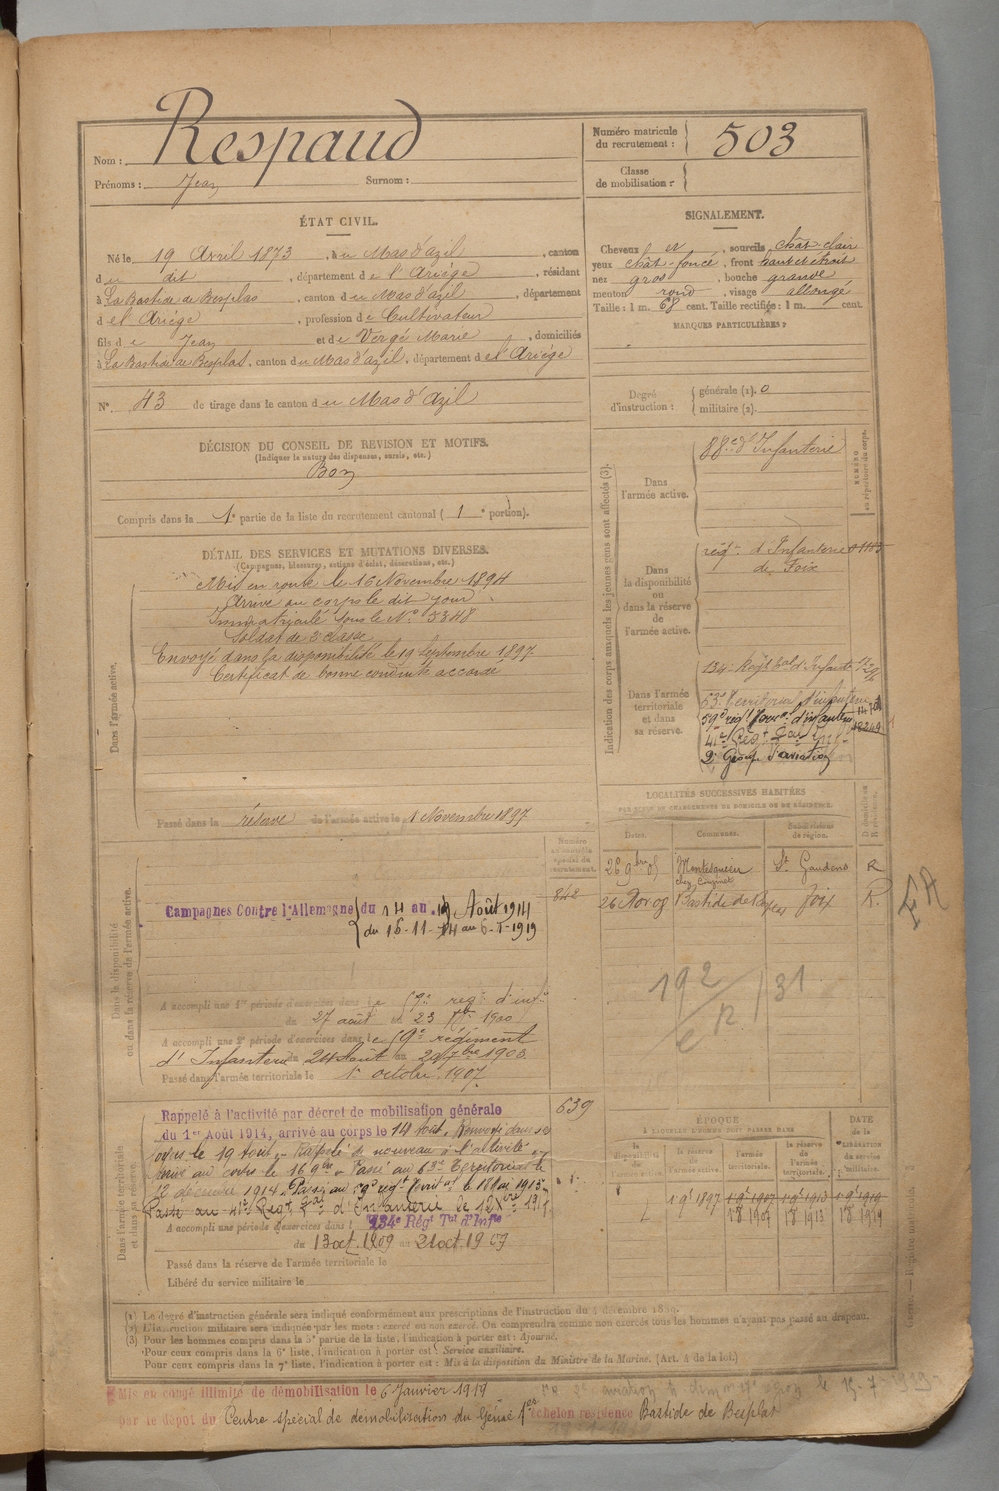 Nom : Respaud
Prénoms : Jean Surnom :
Numéro matricule du recrutement : 503
Classe de mobilisation :
ÉTAT CIVIL.
Né le 19 Avril 1873, à u Mas d'azil, canton
d u dit, département de l'Ariège, résidant
à La Bastide de Besplas, canton du Mas d'azil, département
d el Ariège, profession de Cultivateur
fils de Jean et de Vergé Marie, domiciliés
à La Bastide de Besplas, canton du Mas d'azil, département de l'Ariège
N° 43 de tirage dans le canton du Mas d'Azil
SIGNALEMENT.
Cheveux et, sourcils chât-clair
yeux chât-foncé, front haut et étroit
nez gros, bouche grande
menton rond, visage allongé
Taille : 1 m. 68 cent. Taille rectifiée : 1 m. cent.
MARQUES PARTICULIÈRES :
Degré d'instruction : générale (1). 0
militaire (2).
DÉCISION DU CONSEIL DE REVISION ET MOTIFS.
(Indiquer la nature des dispenses, sursis, etc.)
Bon
Compris dans la 1e partie de la liste du recrutement cantonal ( 1e portion).
DÉTAIL DES SERVICES ET MUTATIONS DIVERSES.
(Campagnes, blessures, actions d'éclat, décorations, etc.)
Dans l'armée active.
Mis en route le 16 Novembre 1894
Arrivé au corps le dit jour
Immatriculé sous le N° 5348
Soldat de 2e classe
Envoyé dans la disponibilité le 19 Septembre 1897
Certificat de bonne conduite accordé
Passé dans la réserve de l'armée active le 1 Novembre 1897
Indication des corps auxquels les jeunes gens sont affectés (3).
Dans l'armée active.
88e d'Infanterie
Dans la disponibilité ou dans la réserve de l'armée active.
régt d'Infanterie
de Foix
Dans l'armée territoriale et dans sa réserve.
134e Régt Eal d'Infanterie
63e Territorial d'infanterie
59e régt Terr. d'infanterie
2e Groupe d'aviation
LOCALITÉS SUCCESSIVES HABITÉES
PAR SUITE DE CHANGEMENTS DE DOMICILE OU DE RÉSIDENCE.
Dates. Communes. Subdivisions de région. D. domicile ou R. résidence.
26 9bre 05 Montesquieu St Gaudens R
26 Bastide de Besplas Foix R.
FA
192
31
Numéro au contrôle spécial du recrutement.
842
Dans la disponibilité ou dans la réserve de l'armée active.
Campagnes Contre l'Allemagne du 14 au 19 Août 1914
du 16-11-14 au 6-1-1919
A accompli une 1re période d'exercices dans le 59e régt d'inf.
du 27 août au 23 1900
A accompli une 2e période d'exercices dans le 59e régiment
d'Infanterie du 24 Août au
Passé dans l'armée territoriale le 1er octobre 1907
Dans l'armée territoriale et dans sa réserve.
639
Rappelé à l'activité par décret de mobilisation générale
du 1er Août 1914, arrivé au corps le 14 Août. Renvoyé dans ses
foyers le 19 Août. Rappelé de nouveau à l'activité
Arrivé au corps le 16 9bre. Passé au 63e Territorial le
12 décembre 1914. Passé au 59e régt Territal le 18 Mai 1915.
Passé au 41e Régt Cal d'Infanterie le 12 Xbre 1917.
A accompli une période d'exercices dans l 134e Régt Tal d'Infie
du 13 oct. 1909 au 21 oct. 1909
Passé dans la réserve de l'armée territoriale le
Libéré du service militaire le
ÉPOQUE
A LAQUELLE L'HOMME DOIT PASSER DANS
la disponibilité de l'armée active. la réserve de l'armée active. l'armée territoriale. la réserve de l'armée territoriale.
DATE de la LIBÉRATION du service militaire.
1 9bre 1897 1 9bre 1907 1 9bre 1913 1 9bre 1919
1 8 1907 1 8 1913 1 8 1919
(1) Le degré d'instruction générale sera indiqué conformément aux prescriptions de l'instruction du 4 décembre 1889.
(2) L'instruction militaire sera indiquée par les mots : exercé ou non exercé. On comprendra comme non exercés tous les hommes n'ayant pas passé au drapeau.
(3) Pour les hommes compris dans la 5e partie de la liste, l'indication à porter est : Ajourné.
Pour ceux compris dans la 6e liste, l'indication à porter est : Service auxiliaire.
Pour ceux compris dans la 7e liste, l'indication à porter est : Mis à la disposition du Ministre de la Marine. (Art. 4 de la loi.)
Mis en congé illimité de démobilisation le 6 Janvier 1919
par le dépôt du Centre spécial de démobilisation du Génie 1er échelon résidence Bastide de Besplas